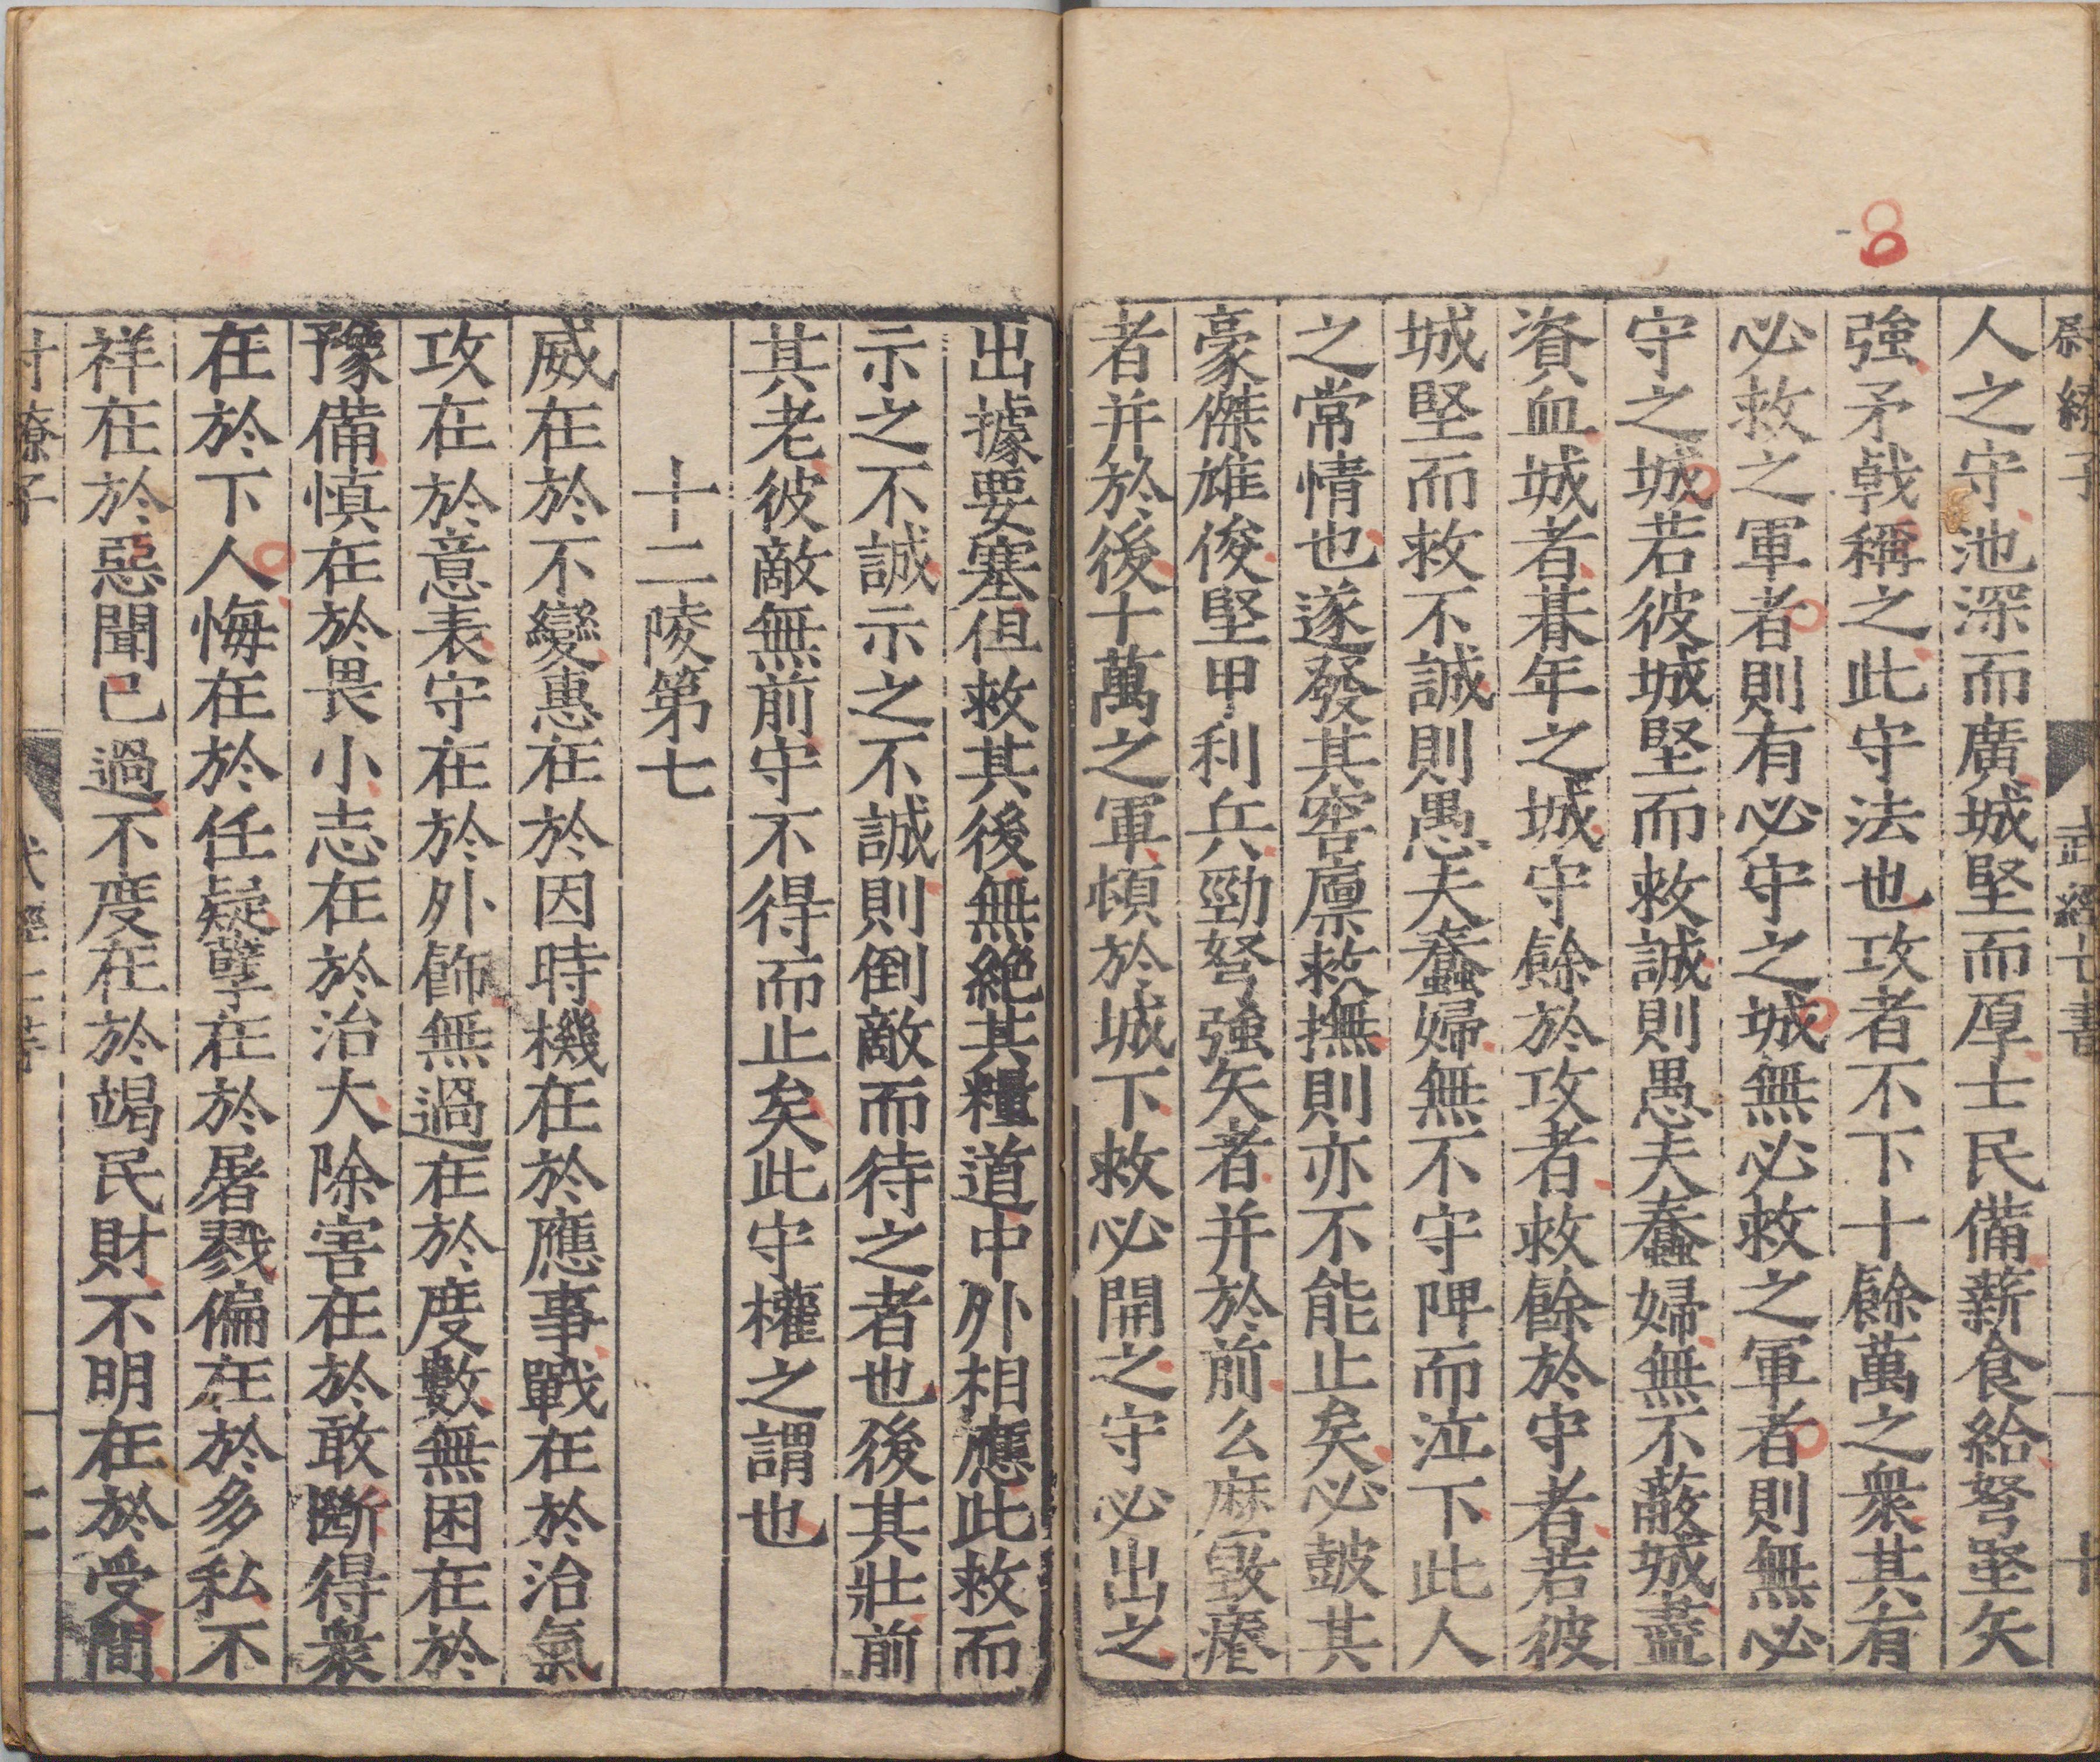 尉繚子 武經七書 十
人之守池深而廣城堅而厚士民備薪食給弩堅矢
強矛戟稱之此守法也攻者不下十餘萬之衆其有
必救之軍者則有必守之城無必救之軍者則無必
守之城若彼城堅而救誠則愚夫蠢婦無不蔽城盡
資血城者朞年之城守餘於攻者救餘於守者若彼
城堅而救不誠則愚夫蠢婦無不守陴而泣下此人
之常情也遂發其窖廩救撫則亦不能止矣必鼓其
豪傑雄俊堅甲利兵勁弩強矢者并於前么麻毀瘠
者并於後十萬之軍頓於城下救必開之守必出之
出據要塞但救其後無絶其糧道中外相應此救而
示之不誠示之不誠則倒敵而待之者也後其壯前
其老彼敵無前守不得而止矣此守權之謂也
十二陵第七
威在於不變惠在於因時機在於應事戰在於治氣
攻在於意表守在於外飾無過在於度數無困在於
豫備慎在於畏小志在於治大除害在於敢斷得衆
在於下人悔在於任疑孽在於屠戮偏在於多私不
祥在於惡聞已過不度在於竭民財不明在於受間
尉繚子